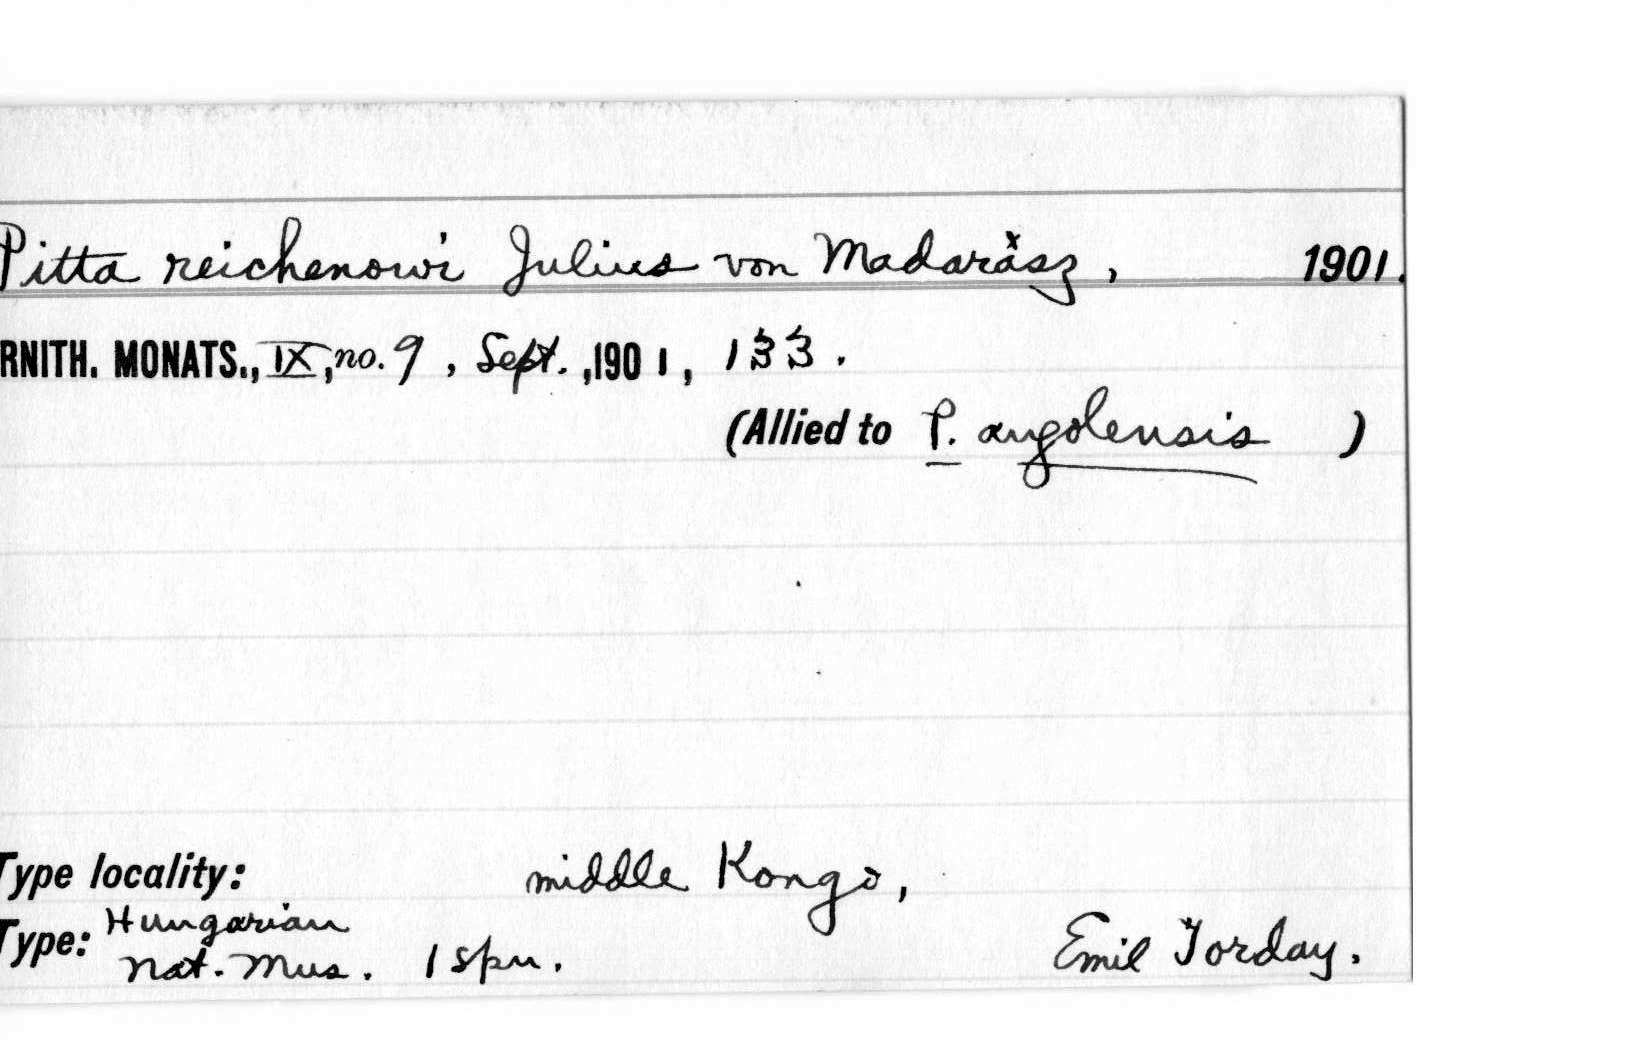 Pitta reichenowi Julius von Madarász, 1901.
RNITH. MONATS., IX, no. 9, Sept., 1901, 133.
(Allied to P. angolensis )
Type locality: middle Kongo,
Type: Hungarian
Nat. Mus. 1 spn. Emil Torday.